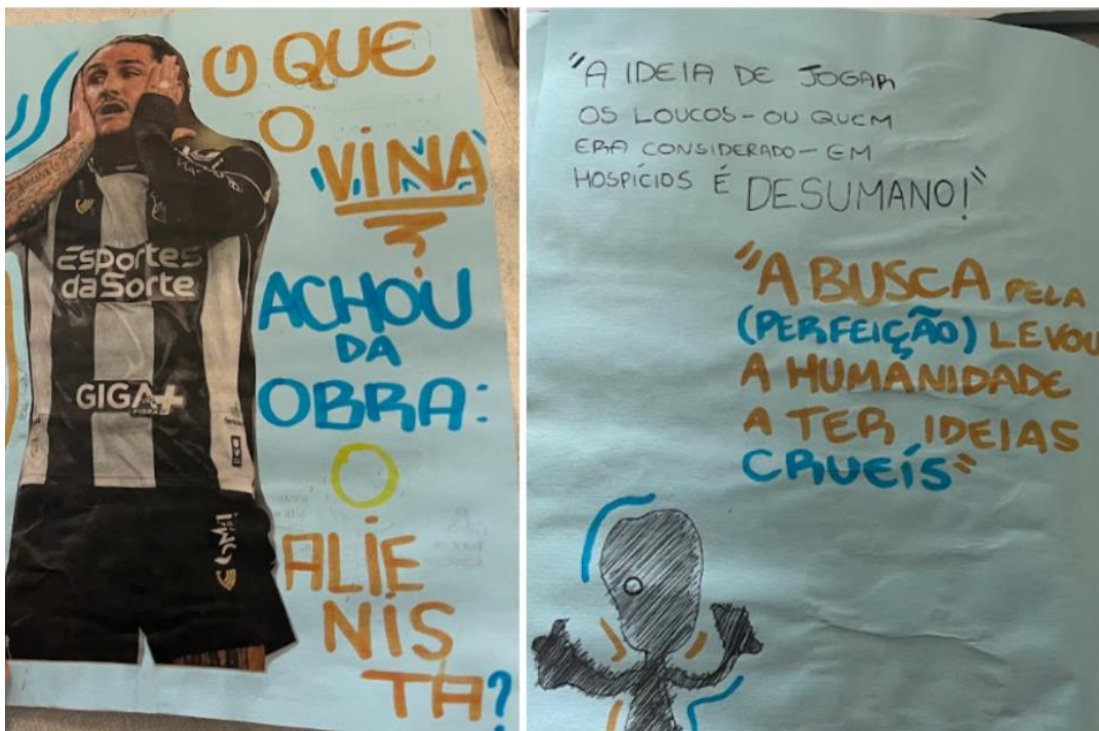 O QUE
O
"VINA"
ACHOU
DA
OBRA:
O
ALIE
NIS
TA?
Esportes
da Sorte
GIGA+
FIBRA
"A IDEIA DE JOGAR
OS LOUCOS - OU QUEM
ERA CONSIDERADO - EM
HOSPÍCIOS É DESUMANO!"
"A BUSCA PELA
(PERFEIÇÃO) LEVOU
A HUMANIDADE
A TER IDEIAS
CRUEÍS"